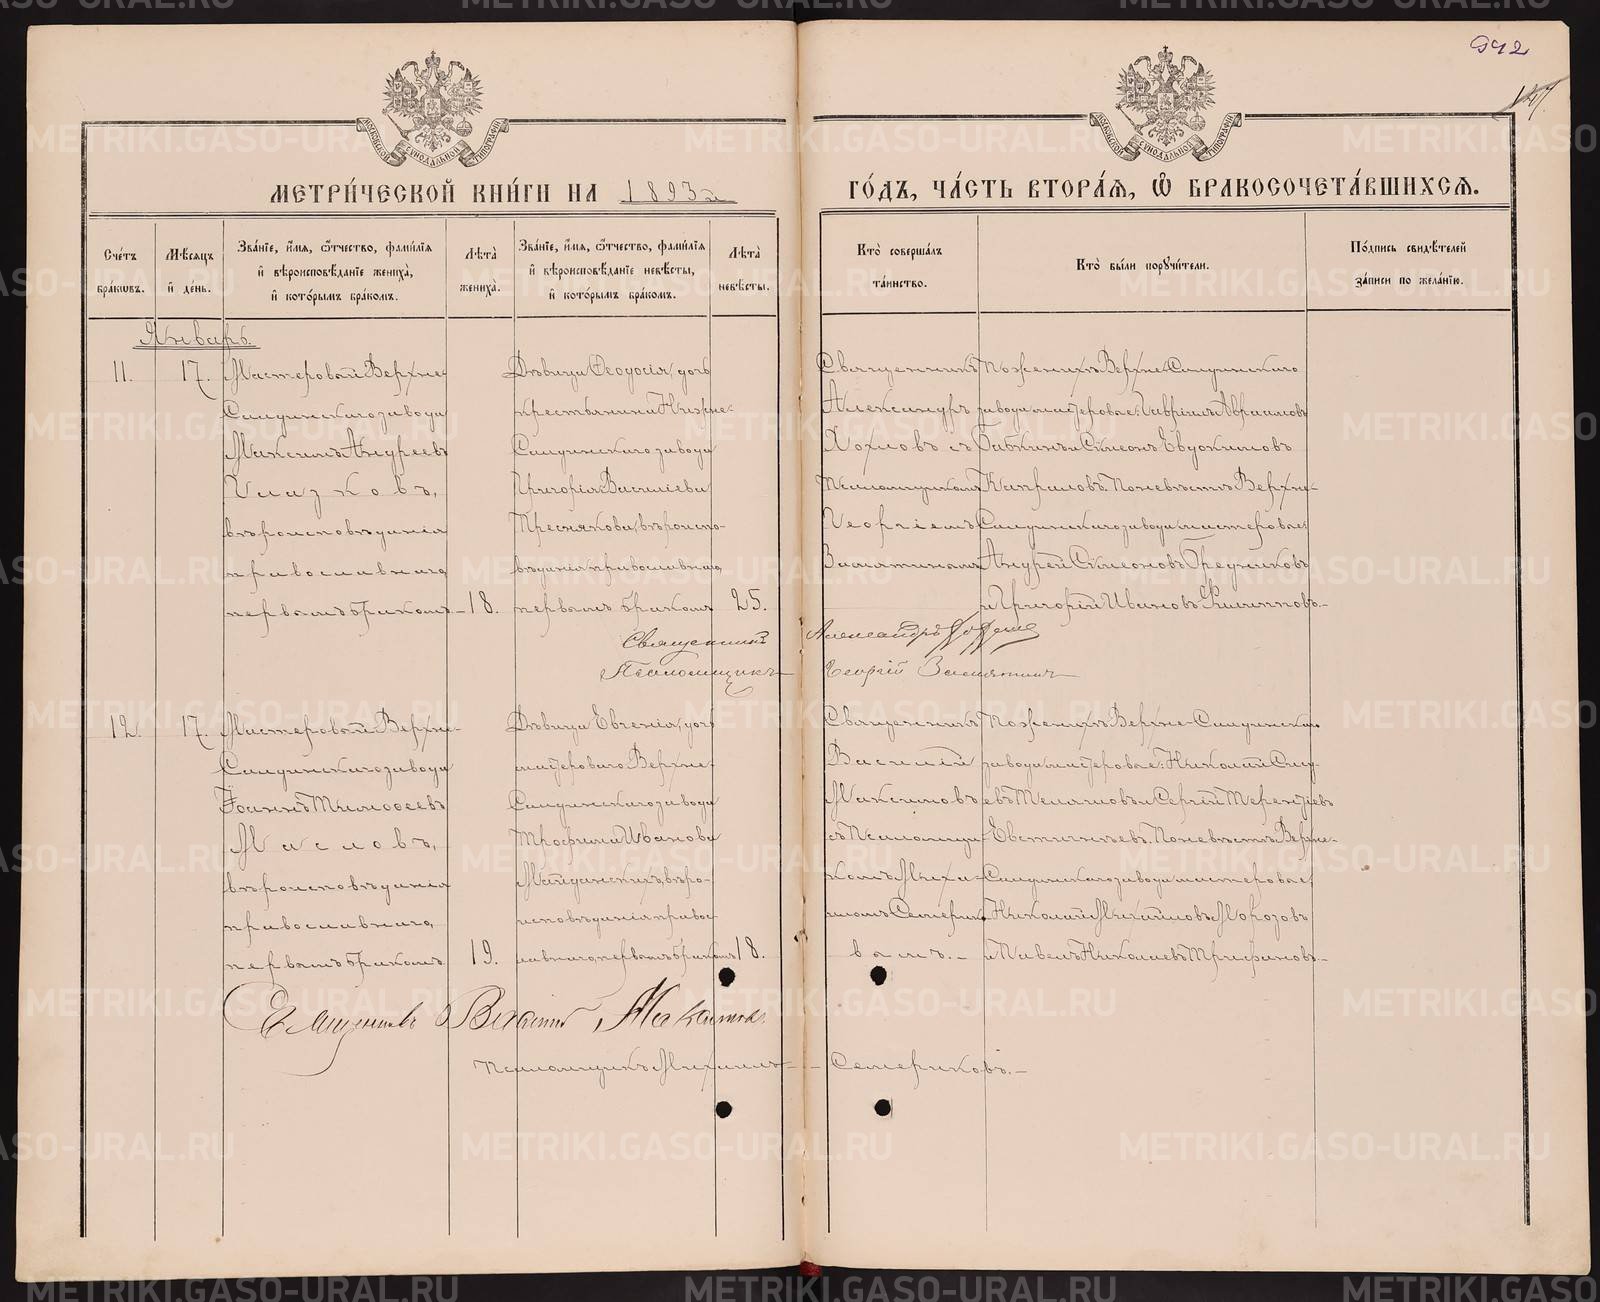 942
147.
МЕТРИ́ЧЕСКОЙ КНИ́ГИ НА 1893 й
ГО́ДЪ, ЧА́СТЬ ВТОРА́Я, Ѽ БРАКОСОЧЕТА́ВШИХСЯ.
Сче́тъ бра́кѡвъ.
Мѣ́сяцъ й де́нь.
Зва́нїе, и́мя, ѻ́тчество, фами́лїя й вѣроисповѣ́данїе жениха̀, й кото́рымъ бра́комъ.
Лѣта̀ жениха̀.
Зва́нїе, и́мя, ѻ́тчество, фами́лїя й вѣроисповѣ́данїе невѣ́сты, й кото́рымъ бра́комъ.
Лѣта̀ невѣ́сты.
Кто̀ соверша́лъ та́инство.
Кто̀ бы́ли порꙋчи́тели.
По́дпись свидѣ́телей за́писи по жела́нїю.
Январь.
11.
17.
Мастеровой Верхне-
Салдинскаго завода
Максимъ Андреевъ
Глазковъ,
вѣроисповѣданія
православнаго,
первымъ бракомъ
18.
Дѣвица Ѳеодосія, дочь
крестьянина Нижне-
Салдинскаго завода
Григорія Васильева
Треснякова, вѣроиспо-
вѣданія православнаго,
первымъ бракомъ
25.
Священникъ
Александръ
Хохловъ съ
Псаломщикомъ
Георгіемъ
Замятинымъ
По женихѣ: Верхне-Салдинскаго
завода мастеровые: Гавріилъ Авраамовъ
Бабкинъ и Симеонъ Евдокимовъ
По невѣстѣ: Верхне-
Салдинскаго завода мастеровые:
Андрей Симеоновъ Гредниковъ
и Григорій Ивановъ Филипповъ.
Священникъ Александръ
Псаломщикъ Георгій Замятинъ
12.
17.
Мастеровой Верхне-
Салдинскаго завода
Іоаннъ Тимоѳеевъ
Масловъ,
вѣроисповѣданія
православнаго,
первымъ бракомъ
19.
Дѣвица Евгенія, дочь
мастероваго Верхне-
Салдинскаго завода
Трофима Иванова
Майданскихъ, вѣро-
исповѣданія право-
славнаго, первымъ бракомъ
18.
Священникъ
Василій
Максимовъ
съ Псаломщи-
комъ Миха-
иломъ Семерико-
вымъ.
По женихѣ: Верхне-Салдинскаго
завода мастеровые: Николай Сав-
евъ и Сергій Терентьевъ
Евстигнѣевъ. По невѣстѣ: Верхне-
Салдинскаго завода мастеровые:
Николай Михайловъ Морозовъ
и Павелъ Николаевъ Трифановъ.
Священникъ Василій
Псаломщикъ Михаилъ Семериковъ.
METRIKI.GASO-URAL.RU